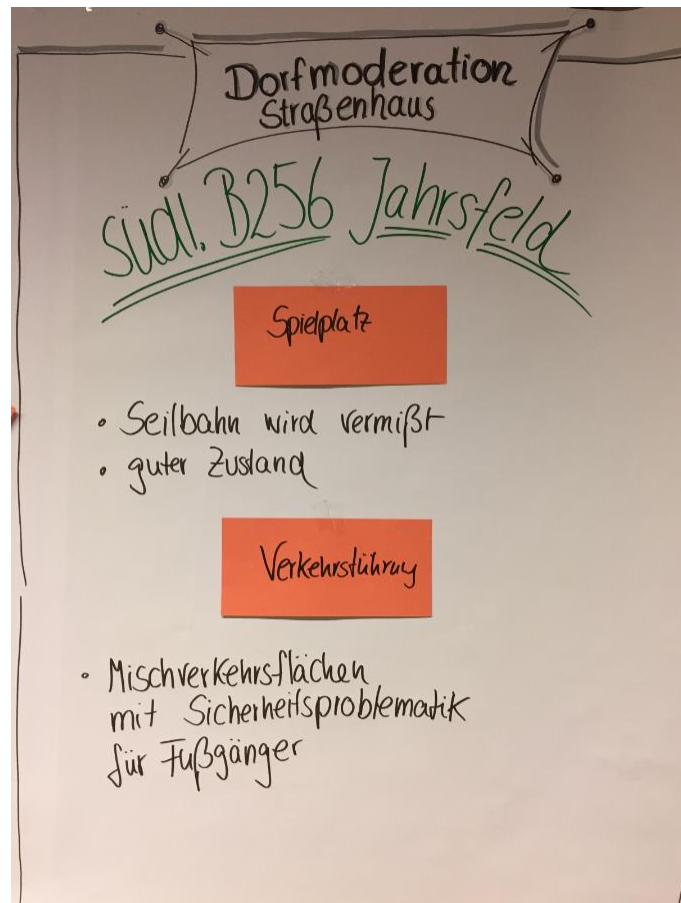 Dorfmoderation
Straßenhaus
südl. B256 Jahrsfeld
Spielplatz
• Seilbahn wird vermißt
• guter Zustand
Verkehrsführung
• Mischverkehrsflächen
mit Sicherheitsproblematik
für Fußgänger